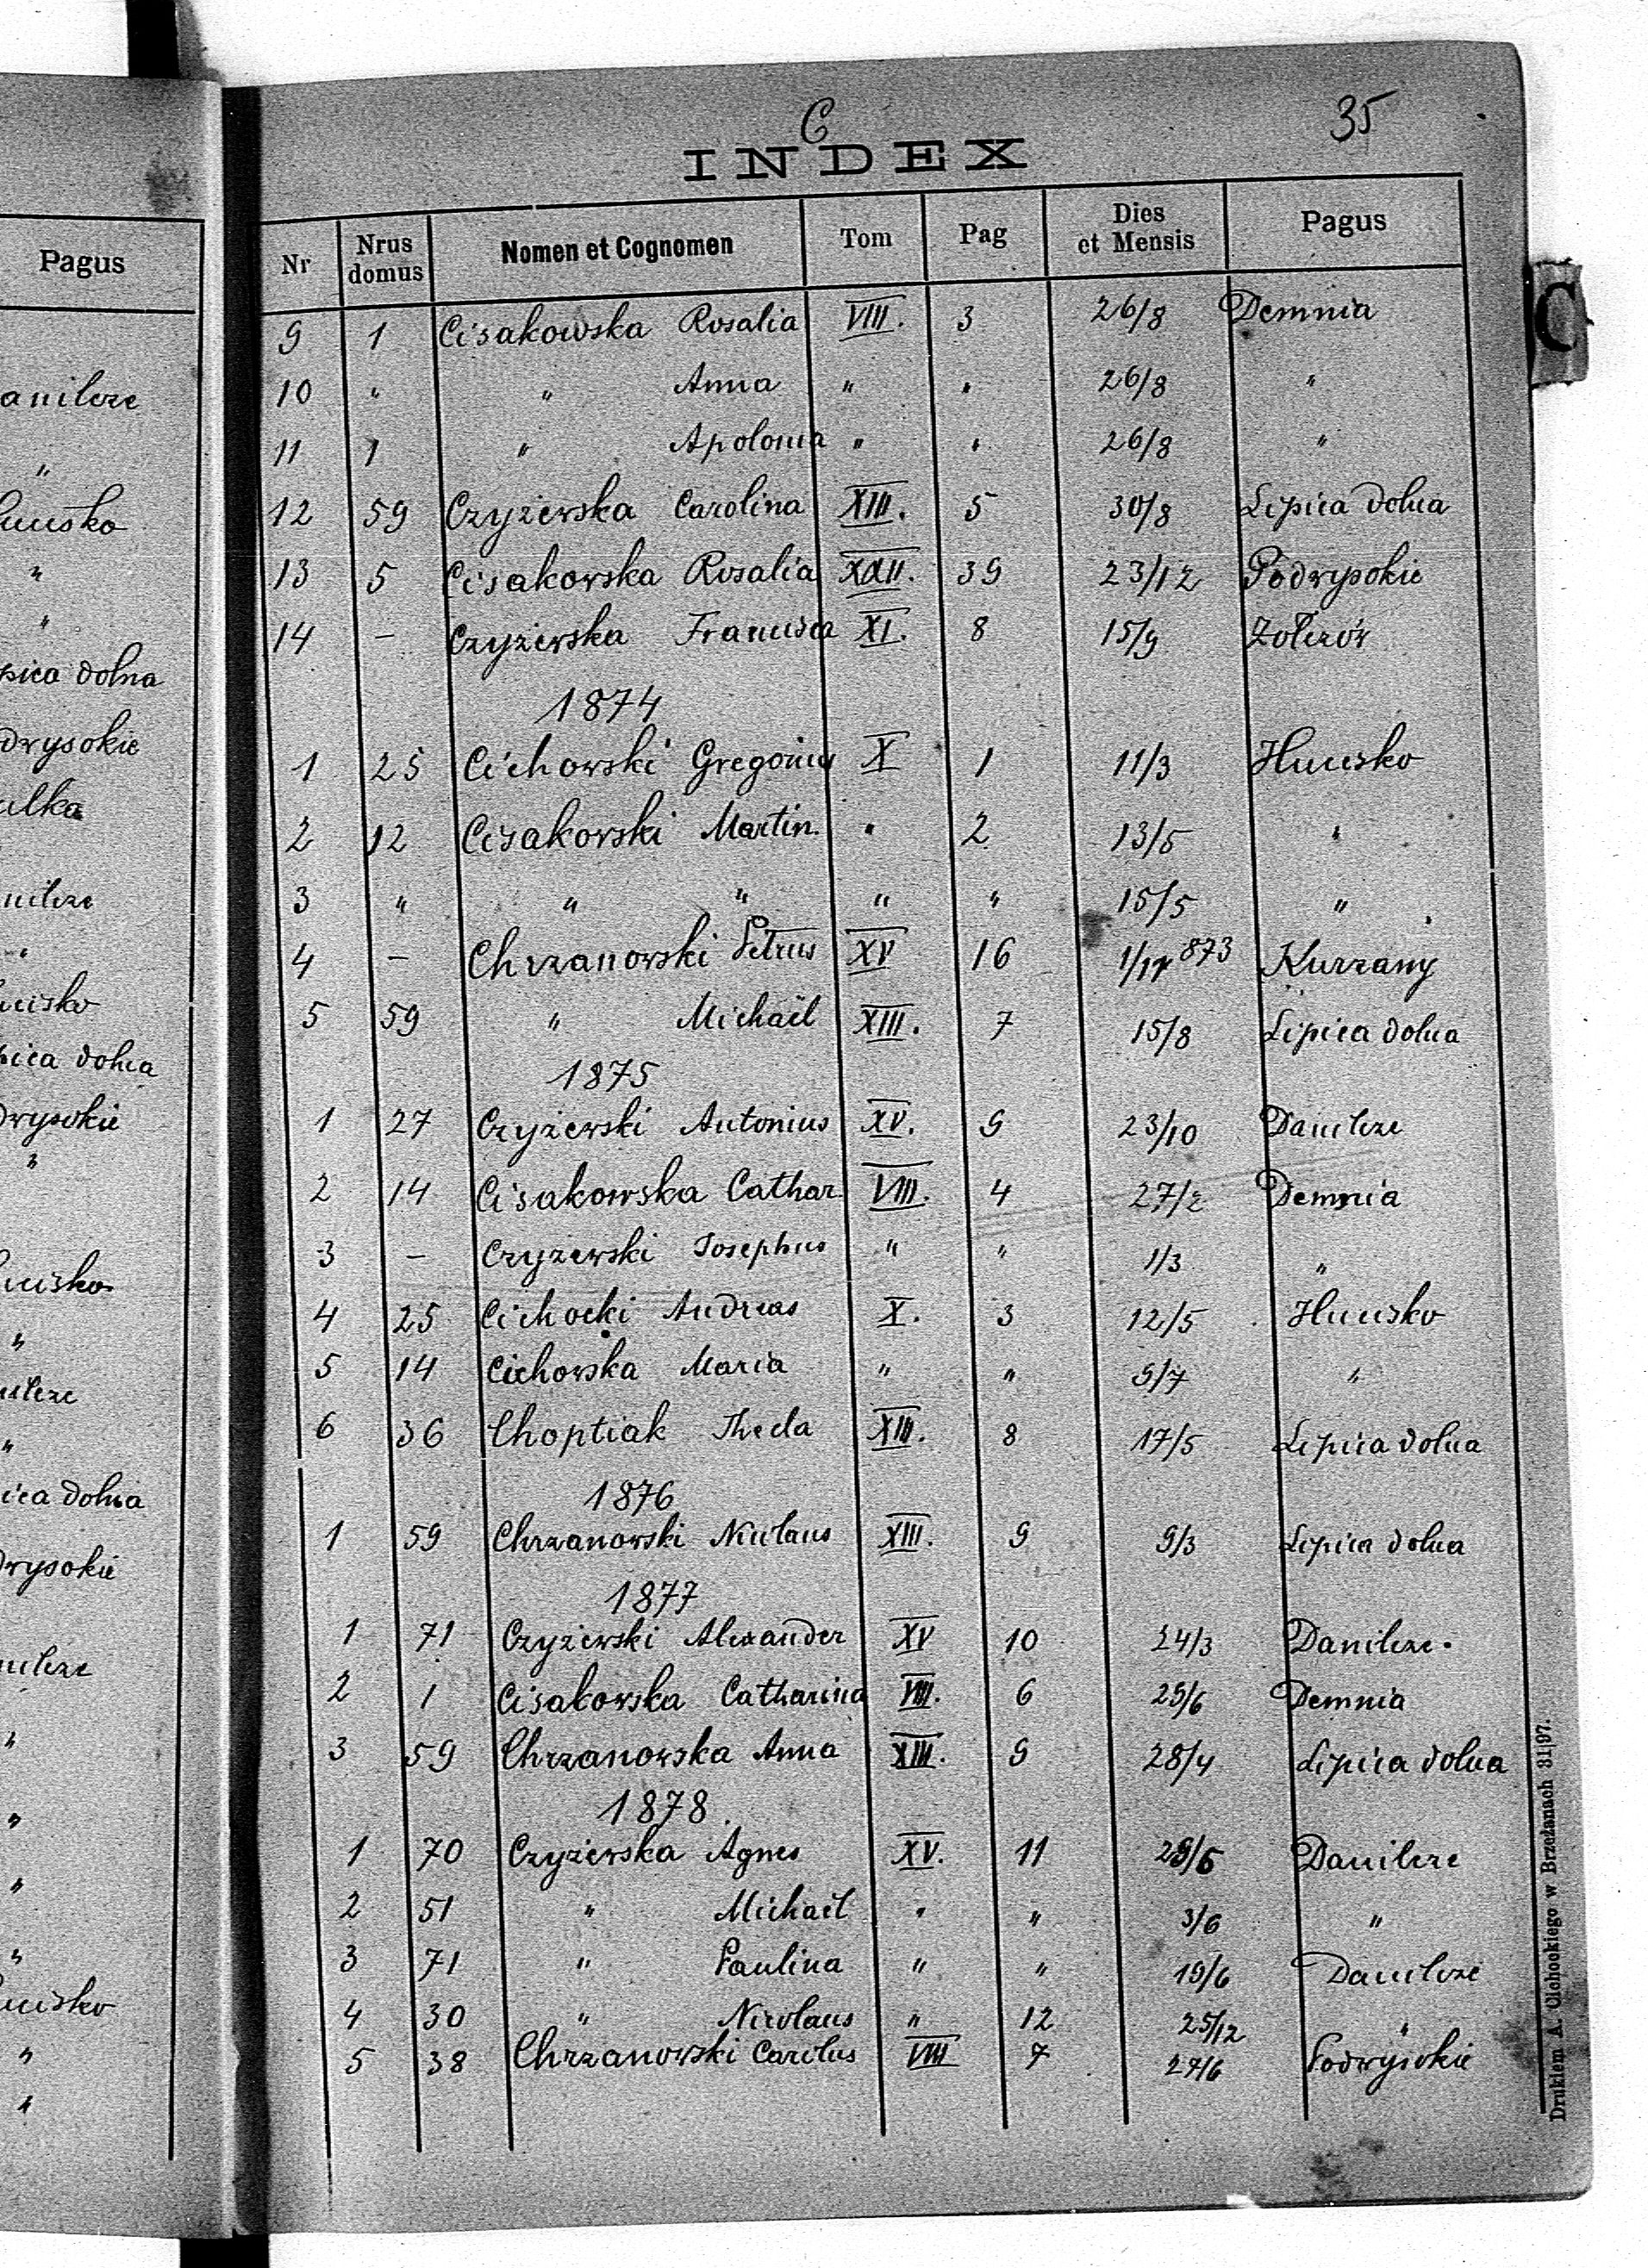 Pagus
anilcze
"
Hucisko
"
"
Lipica dolna
Podwysokie
ulka
nilcze
"
Hucisko
Lipica dolna
Podwysokie
"
Hucisko
"
nilcze
"
Lipica dolna
Podwysokie
nilcze
"
"
"
"
Hucisko
"
"
C
35
INDEX
Nr Nrus domus Nomen et Cognomen Tom Pag Dies et Mensis Pagus
9 1 Cisakowska Rosalia VIII. 3 26/8 Demnia
10 " " Anna " " 26/8 "
11 1 " Apolonia " " 26/8 "
12 59 Czyżewska Carolina XIII. 5 30/8 Lipica dolna
13 5 Cisakowska Rosalia 39 23/12 Podwysokie
14 – Czyżewska Francisca XI. 8 15/9 Zołczów
1874
1 25 Cichowski Gregorius X 1 11/3 Hucisko
2 12 Cisakowski Martin. " 2 13/5 "
3 " " " " " 15/5 "
4 – Chrzanowski Petrus XV 16 1/11 873 Kurzany
5 59 " Michaël XIII. 7 15/8 Lipica dolna
1875
1 27 Czyżewski Antonius XV. 9 23/10 Danilcze
2 14 Cisakowska Cathar. VIII. 4 27/2 Demnia
3 – Czyżewski Josephus " " 1/3 "
4 25 Cichocki Andreas X. 3 12/5 Hucisko
5 14 Cichowska Maria " " 9/7 "
6 36 Choptiak Thecla XIII. 8 17/5 Lipica dolna
1876
1 59 Chrzanowski Nicolaus XIII. 9 9/3 Lipica dolna
1877
1 71 Czyżewski Alexander XV 10 24/3 Danilcze.
2 1 Cisakowska Catharina VIII. 6 25/6 Demnia
3 59 Chrzanowska Anna XIII. 9 28/4 Lipica dolna
1878.
1 70 Czyżewska Agnes XV. 11 29/5 Danilcze
2 51 " Michaël " " 3/6 "
3 71 " Paulina " " 19/6 Danilcze
4 30 " Nicolaus " 12 25/12 "
5 38 Chrzanowski Carolus VIII 7 27/6 Podwysokie
C
Drukiem A. Cichockiego w Brzeżanach 31|97.